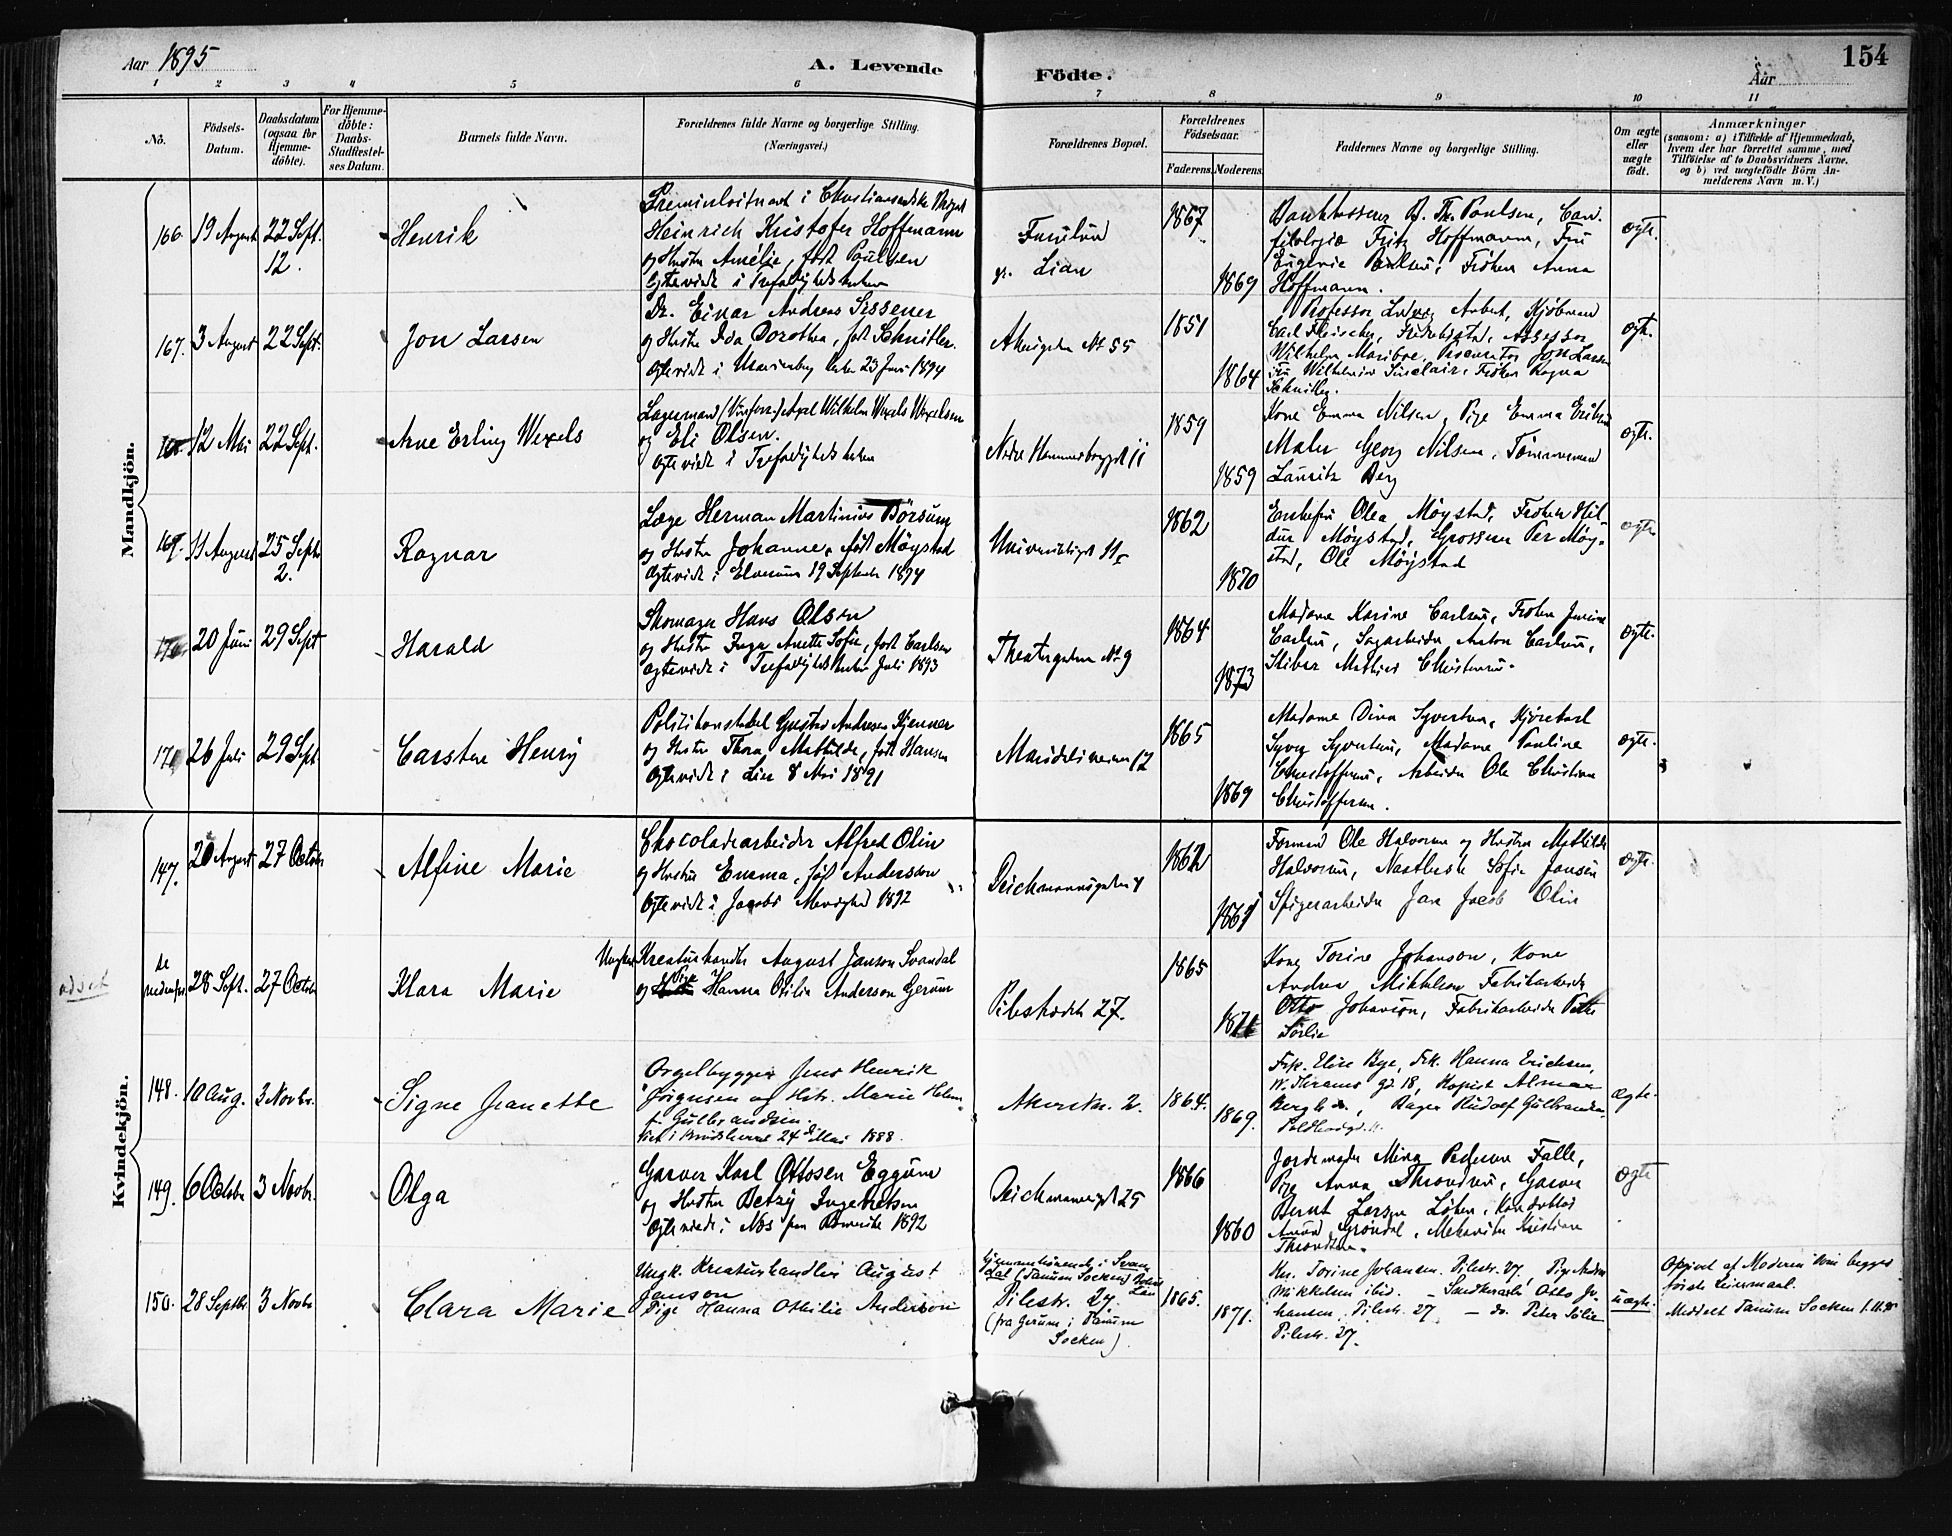 Aar 1895
A. Levende
Födte.
Aar
154
1 2 3 4 5 6 7 8 9 10 11
No.
Födsels-
Datum.
Daabsdatum
(ogsaa for
Hjemme-
döbte).
For Hjemme-
döbte:
Daabs-
Stadfestel-
ses Datum.
Barnets fulde Navn.
Forældrenes fulde Navne og borgerlige Stilling.
(Næringsvei.)
Forældrenes Bopæl.
Forældrenes
Födselsaar.
Faderens. Moderens.
Faddernes Navne og borgerlige Stilling.
Om ægte
eller
uægte
födt.
Anmærkninger
(saasom: a) i Tilfælde af Hjemmedaab,
hvem der har forrettet samme, med
Tilföielse af to Daabsvidners Navne.
og b) ved uægtefödte Börn An-
melderens Navn m. V.)
Mandkjön.
166. 19 August 22 Sept.
12.
Henrik
Premierloitnant i Christiansandske Brigad
Heinrich Kristofer Hoffmann
og Hustru Amélie, født Poulsen
Ægteviede i Trefoldighedskirken
Furulund
pr. Lian
1867
1869
Th. Poulsen, Cand.
filologiæ Fritz Hoffmann, Fru
Eugenie Poulsen, Frøken Anna
Hoffmann.
ægte.
167. 3 August 22 Sept.
Jon Larsen
Dr. Einar Andreas Sissener
og Hustru Ida Dorothea, født Schnitler.
Ægteviede i 23 Juni 1894
Akersgaden No 55
1851
1864
Professor Kjøbmand
Carl Fleischer, Fredrikstad, Assessor
Wilhelm Mariboe, Procurator Jon Larsen
Fru Sinclair, Frøken Ragna
Schnitler.
ægte.
12 Mai 22 Sept.
Arne Erling Wexels
Lagermand Axel Wilhelm Wexels Wexelsen
og Eli Olsen.
Ægteviede i Trefoldighedskirken
Nedre 11
1859
1859
Kone Emma Nilsen, Pige Emma Eriksen
Maler Georg Nilsen, Tømmermand
Lauritz Berg
ægte.
169. 11 August 25 Septr
2.
Ragnar
Læge Herman Martinius Börsum
og Hustru Johanne, født Möystad
Ægteviede i Elverum 19 September 1894
Universitetsgt 11
1862
1870
Enkefru Olea Möystad, Frøken Hil-
dur Möystad, Grosserer Per Möy-
stad, Ole Möystad
ægte
170 20 Juni 29 Sept
Harald
Skomager Hans Olsen
og Hustru Inga Anette Sofie, født Carlsen
Ægteviede i Trefoldighedskirken Juli 1893
Theatergaden No 9
1864
1873
Madame Karine Carlsen, Frøken
Carlsen, Sagarbeider Anton Carlsen,
Mathias Christensen.
ægte.
171 26 Juli 29 Sept.
Carsten Henry
Politikonstabel Gustav Andresen Kjenner
og Hustru Thora Mathilde, født Hansen
Ægteviede i Lier 8 Mai 1891
Maridalsveien 12
1865
1869
Madame Dina Syvertsen, Kjørekarl
Syver Syvertsen, Madame Pauline
Christoffersen, Arbeider Ole Christian
Christoffersen.
ægte.
Kvindekjön.
147. 20 August 27 October
Alfine Marie
Chocoladearbeider Alfred Olin
og Hustru Emma, født Andersson
Ægteviede i Jacobs Menighed 1892
Deichmannsgaden 4
1862
1861
Formand Ole Halvorsen og Hustru Mathilde
Halvorsen, Sofie Jansen
Spigerarbeider Jan Jacob Olin
ægte.
se
nedenfor
28 Sept. 27 Octobr
Klara Marie
Ungkar Kreaturhandler August Janson Svandal
og Pige Hanna Otilia Anderson Gerum
Pilestrædet 27.
1865
1871
Kone Torine Johanson, Kone
Andrea Mikkelsen Fabrikarbeider
Otto Johanson, Fabrikarbeider Peter
Sörlie
148. 10 Aug. 3 Novbr.
Signe Jeanette
Orgelbygger Jens Henrik
Jörgensen og Hstr. Marie Helene
f. Gulbrandsen.
24de Mai 1888.
Akersv. 2.
1864.
1869.
Frk. Elise Bye, Frk. Hanna Erichsen,
gd 18, Kopist Almar
Bergh, Bager Rudolf Gulbrandsen
ægte.
149. 6 October 3 Novbr.
Olga
Garver Karl Ottosen Eggum
og Hustru Betzy Ingebretsen
Ægteviede i Næs paa Romerike 1892
Deichmannsgt 25
1866
1860
Jordemoder Mina Pedersen Falle,
Pige Anna Throndsen, Garver
Bernt Larsen Löken,
Gröndal, Mekaniker Kristian
Throndsen.
ægte
150. 28 Septbr. 3 Novbr
Clara Marie
Ungk. Kreaturhandler August
Janson
Pige Hanna Othilie Anderson
hjemmehörende i Svan-
dal (Tanum Socken) Bohus
Län
Pilestr. 27
(fra Gerum i Tanum
Socken)
1865.
1871.
Kn. Torine Johansen. Pilestr. 27, Pige Andrea
Mikkelsen ibid. — Otto Jo-
hansen, Pilestr. 27 — do. Peter Sölie
Pilestr. 27.
uægte.
Opgivet af Moderen som begges
første Leiermaal.
Meddelt Tanum Socken 1.11.95